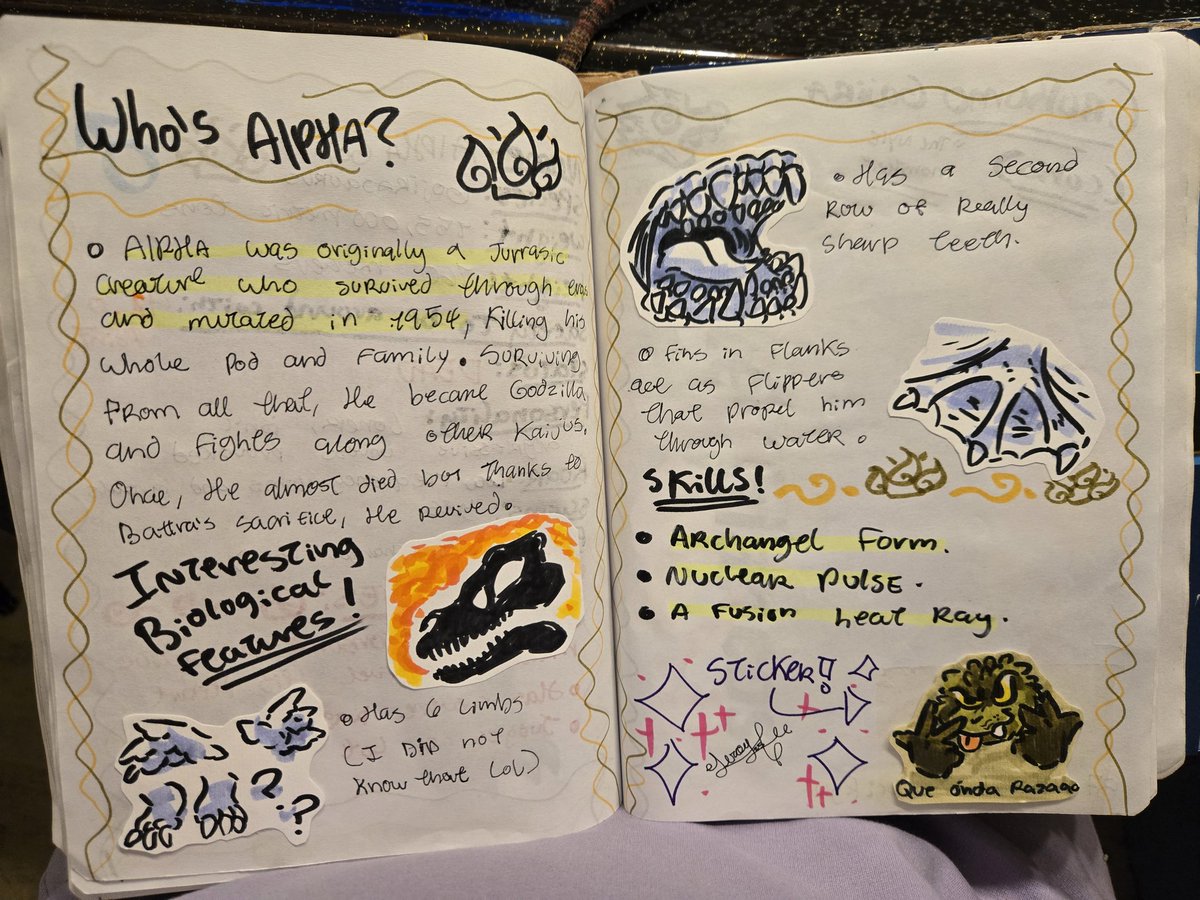 Who's Alpha?
• Alpha was originally a Jurrasic
creature who survived through eras
and mutated in 1954, killing his
whole pod and family. Surviving
from all that, He became Godzilla,
and fights along other Kaijus.
Once, He almost died but thanks to
Battra's sacrifice, He revived.
Interesting
Biological
features!
• Has 6 limbs
(I DID not
know that lol)
? ?
• Has a second
row of really
sharp teeth.
• Fins in flanks
act as flippers
that propel him
through water.
Skills!
• Archangel Form.
• Nuclear pulse.
• A Fusion heat Ray.
Sticker!!
Que onda Razago